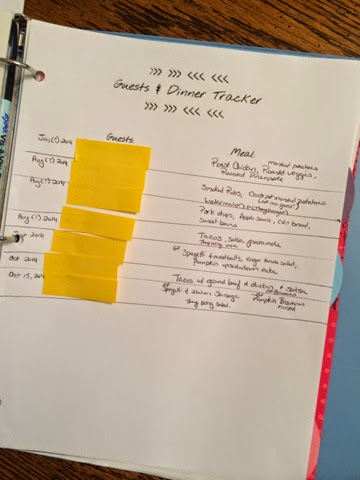 >>> >>> <<< <<<
Guests & Dinner Tracker
>>> >>> <<< <<<
Guests: Meal:
June(?) 2014 Roast Chicken, mashed potatoes
Roasted veggies,
Roasted Pineapple
Aug(?) 2014
Aug(?) 2014 Smoked Ribs, Crockpot mashed potatoes
Watermelon
Aug(?) 2014 Pork chops, Apple sauce, corn bread,
Sweet beans
2014 Tacos, salsa, guacamole
They bring
Oct 2014 GF Spaghetti & meatballs, salad,
Pumpkin upside down cake
Oct 15, 2014 Tacos w/ ground beef & chicken & salsa
GF Spaghetti & Italian Sausage GF Pumpkin Brownies
They bring salad.